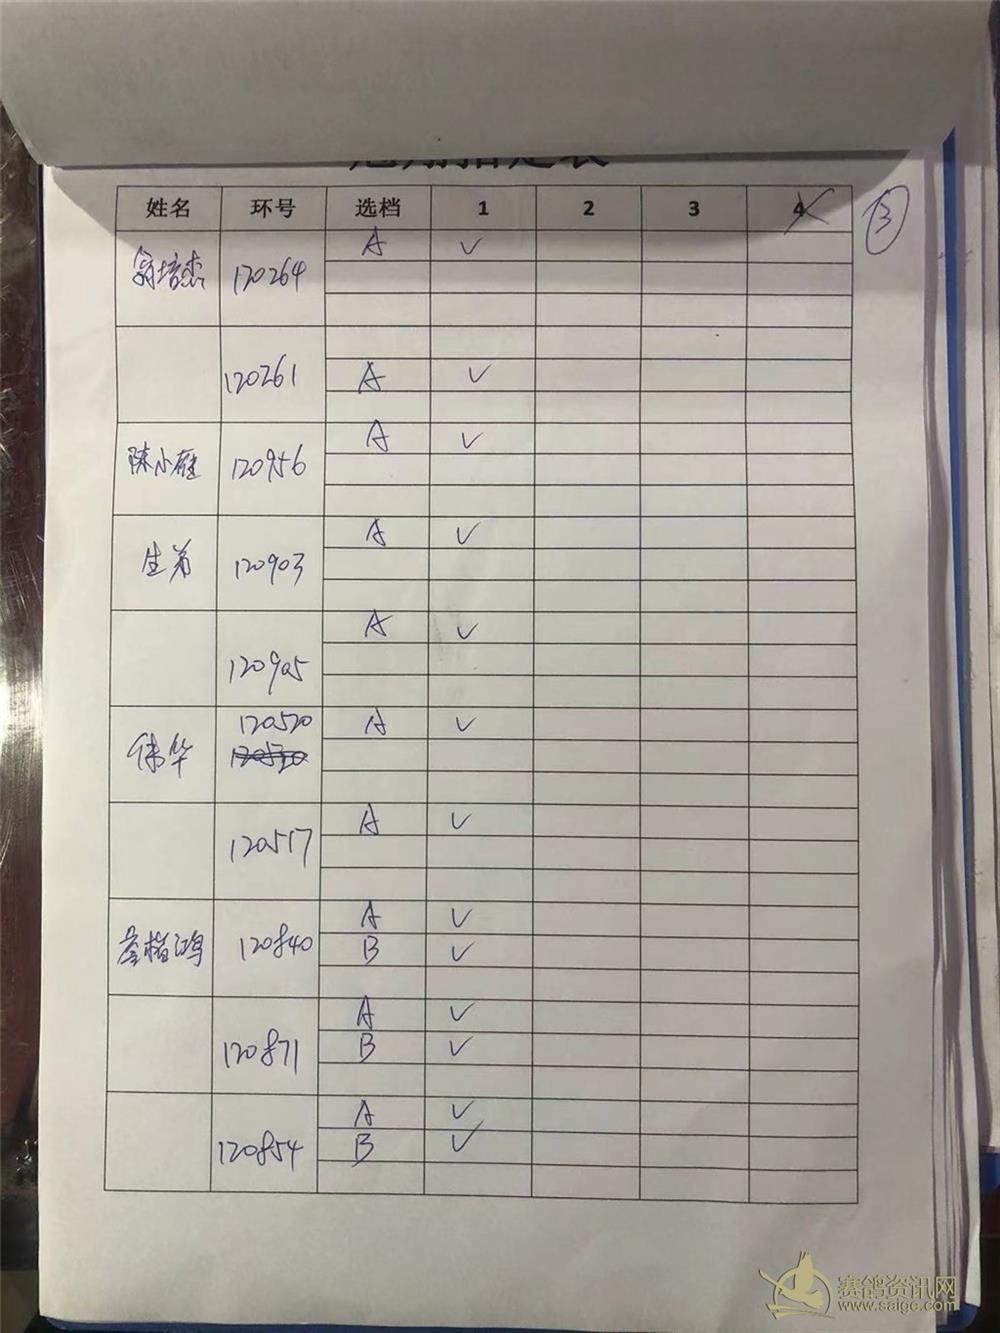 姓名 环号 选档 1 2 3 4 3
翁培杰 120264 A ✓
120261 A ✓
陈小雁 120956 A ✓
生弟 120903 A ✓
120905 A ✓
伟华 120520 A ✓
120517 A ✓
鸿 120840 A ✓
B ✓
120871 A ✓
B ✓
120854 A ✓
B ✓
赛鸽资讯网
www.saigc.com